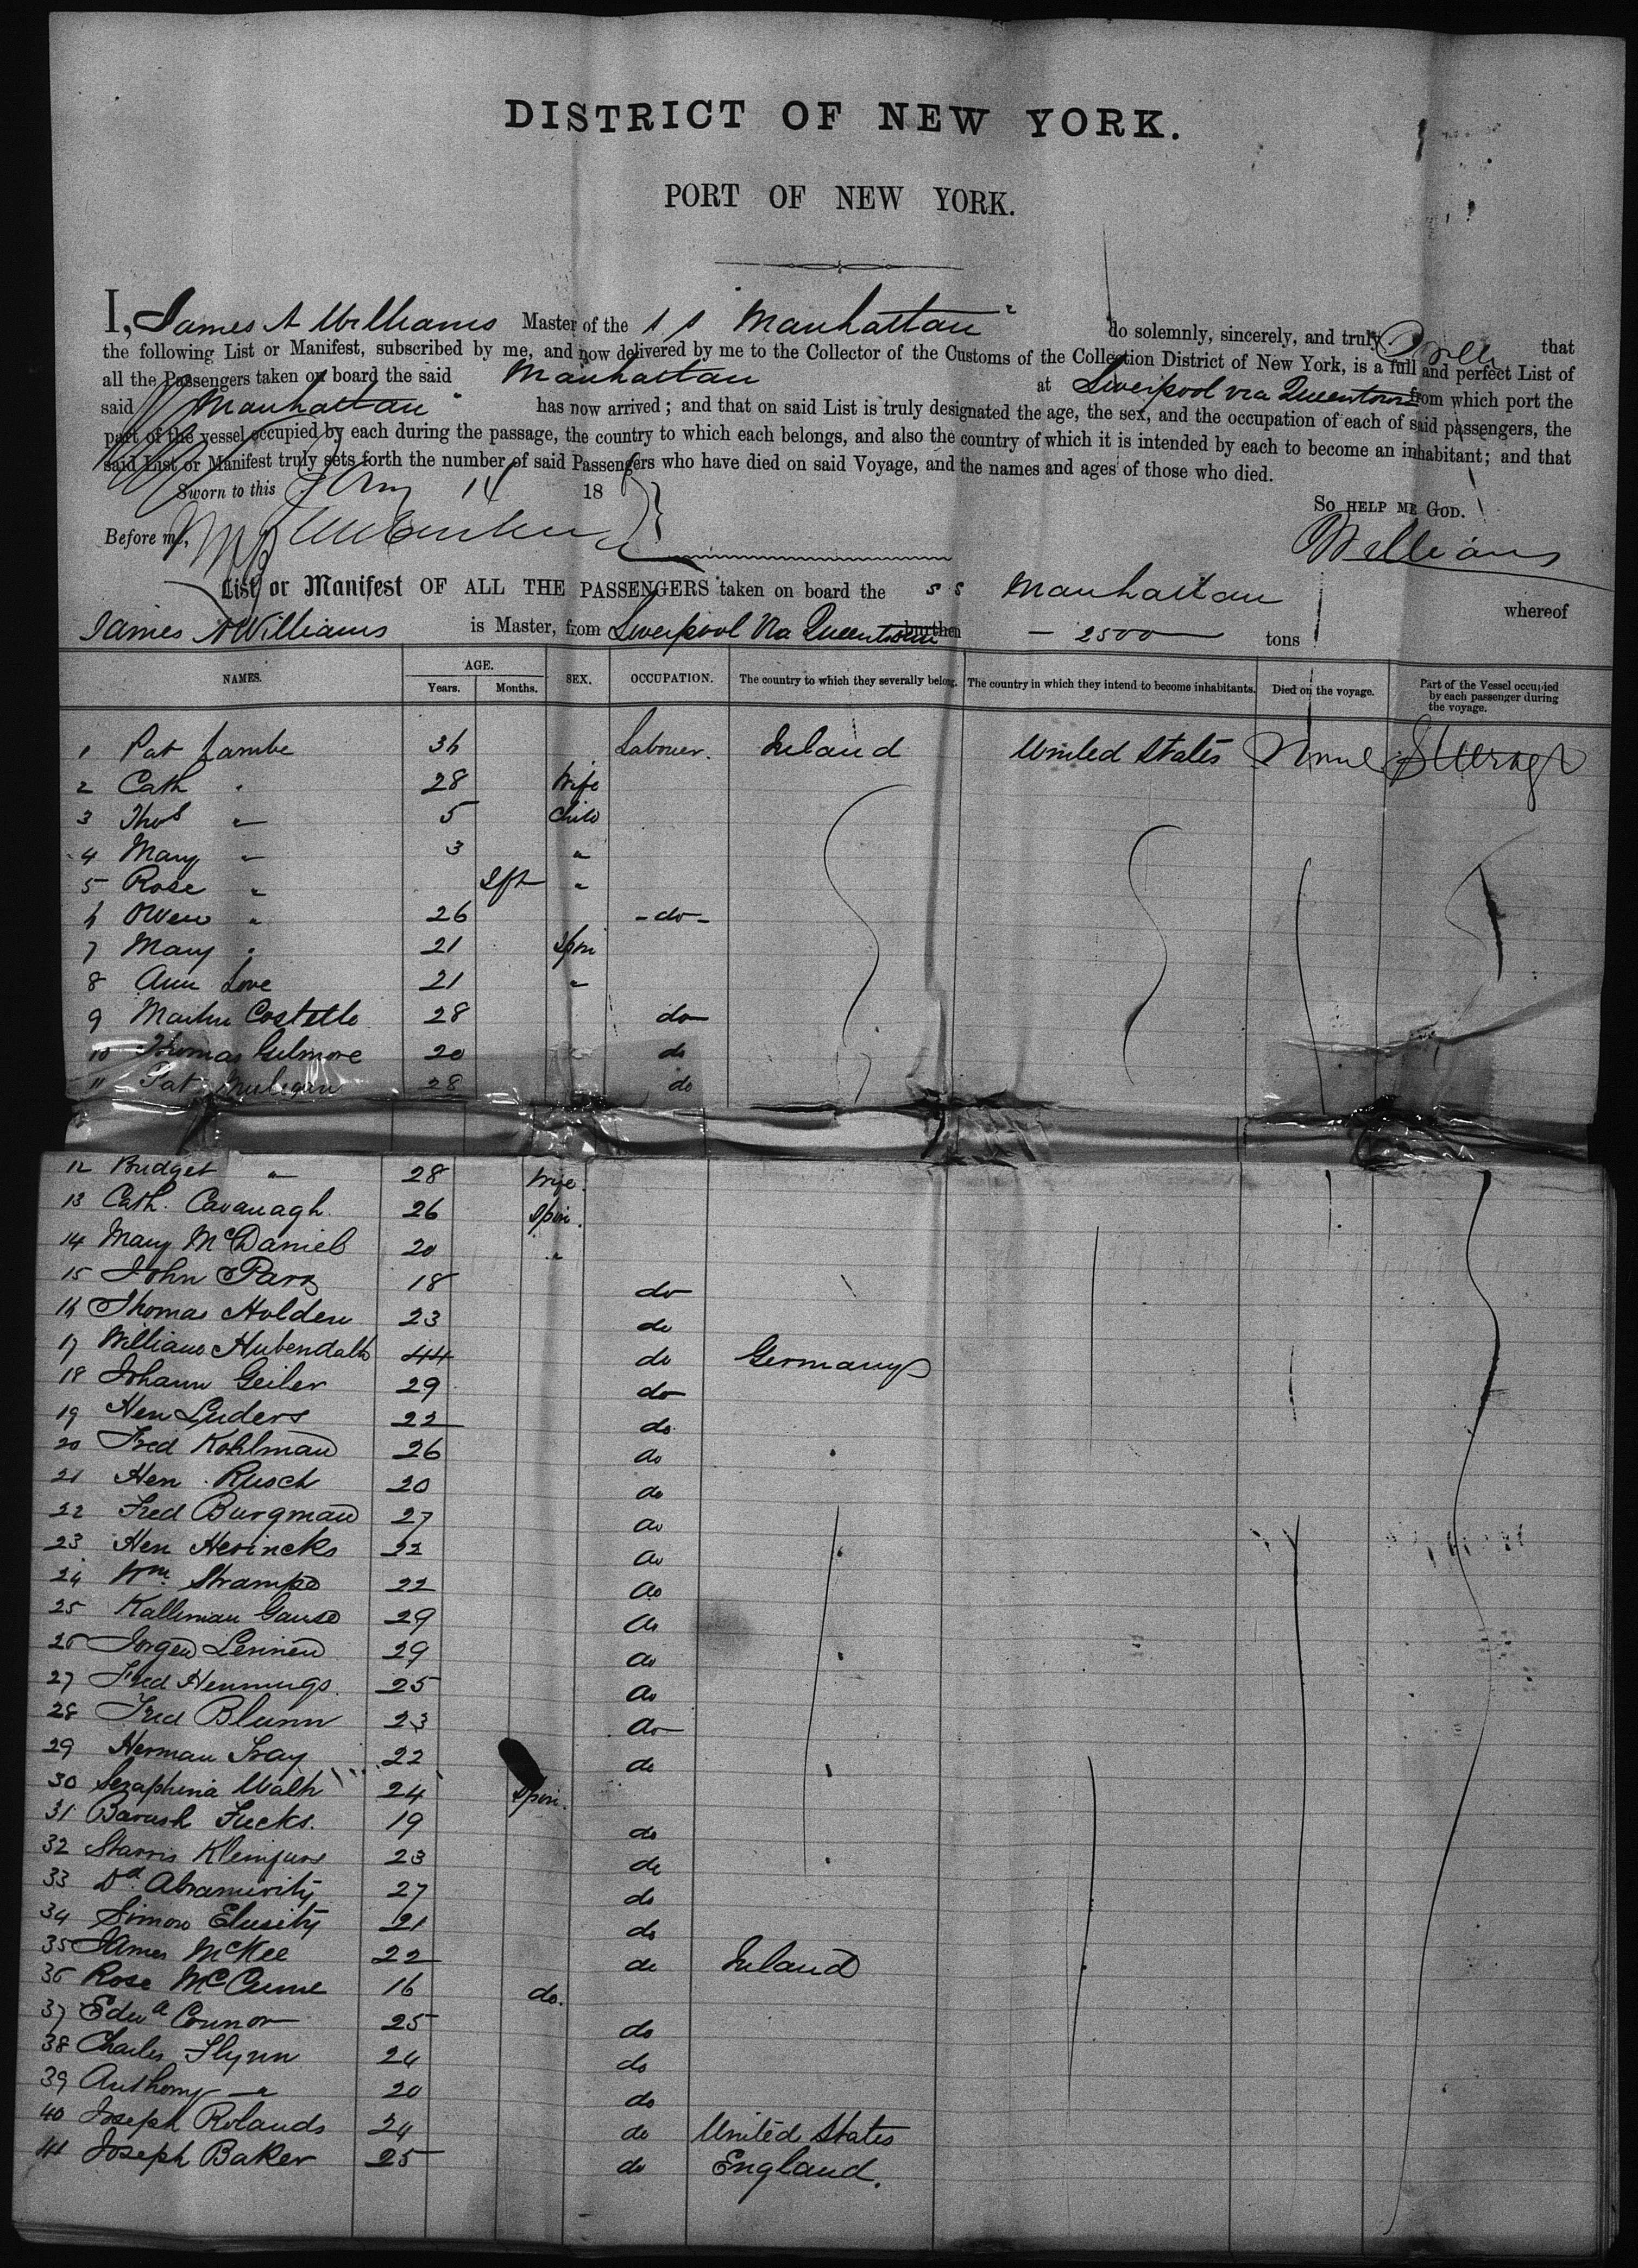 DISTRICT OF NEW YORK.
PORT OF NEW YORK.
I, James A Williams Master of the S S "Manhattan" do solemnly, sincerely, and truly that
the following List or Manifest, subscribed by me, and now delivered by me to the Collector of the Customs of the Collection District of New York, is a full and perfect List of
all the Passengers taken on board the said Manhattan at Liverpool via Queenstown from which port the
said "Manhattan" has now arrived; and that on said List is truly designated the age, the sex, and the occupation of each of said passengers, the
part of the vessel occupied by each during the passage, the country to which each belongs, and also the country of which it is intended by each to become an inhabitant; and that
said List or Manifest truly sets forth the number of said Passengers who have died on said Voyage, and the names and ages of those who died.
Sworn to this 14 18
So HELP ME GOD.
Before me,
Williams
List or Manifest OF ALL THE PASSENGERS taken on board the S S Manhattan whereof
James A Williams is Master, from Liverpool Via Queenstown burthen - 2500 tons
NAMES. AGE. Years. Months. SEX. OCCUPATION. The country to which they severally belong. The country in which they intend to become inhabitants. Died on the voyage. Part of the Vessel occupied by each passenger during the voyage.
1 Pat Lambe 36 Labourer. Ireland United States None Steerage
2 Cath " 28 Wife
3 Thos " 5 Child
4 Mary " 3 "
5 Rose " Inft "
6 Owen " 26 - do -
7 Mary " 21 Spin
8 Ann Love 21 "
9 Martin Costello 28 do
10 Thomas Gilmore 20 do
11 Pat Mulegan 28 do
12 Bridget " 28 Wife.
13 Cath. Cavanagh 26 Spin.
14 Mary McDaniel 20 "
15 John Parr 18 do
16 Thomas Holden 23 do
17 William Hubendalh 44 do Germany
18 Johann Geiler 29 do
19 Hen Luders 22 do
20 Fred Kohlman 26 do
21 Hen Rusch 20 do
22 Fred Burgman 27 do
23 Hen Herincks 22 do
24 Wm. Strampe 22 do
25 Kalleman Gause 29 do
26 Jorgen Lennen 29 do
27 Fred Hennings 25 do
28 Fred Blumn 23 do
29 Herman Tray 22 do
30 Seraphina Walh 24 Spin.
31 Barush Fucks. 19 do
32 Starris Klempure 23 do
33 Dd. Abramivity 27 do
34 Simon Elusity 21 do
35 James McKee 22 do Ireland
36 Rose McCume 16 do.
37 Edwd Connor 25 do
38 Charles Flynn 24 do
39 Anthony " 20 do
40 Joseph Rolands 24 do United States
41 Joseph Baker 25 do England.